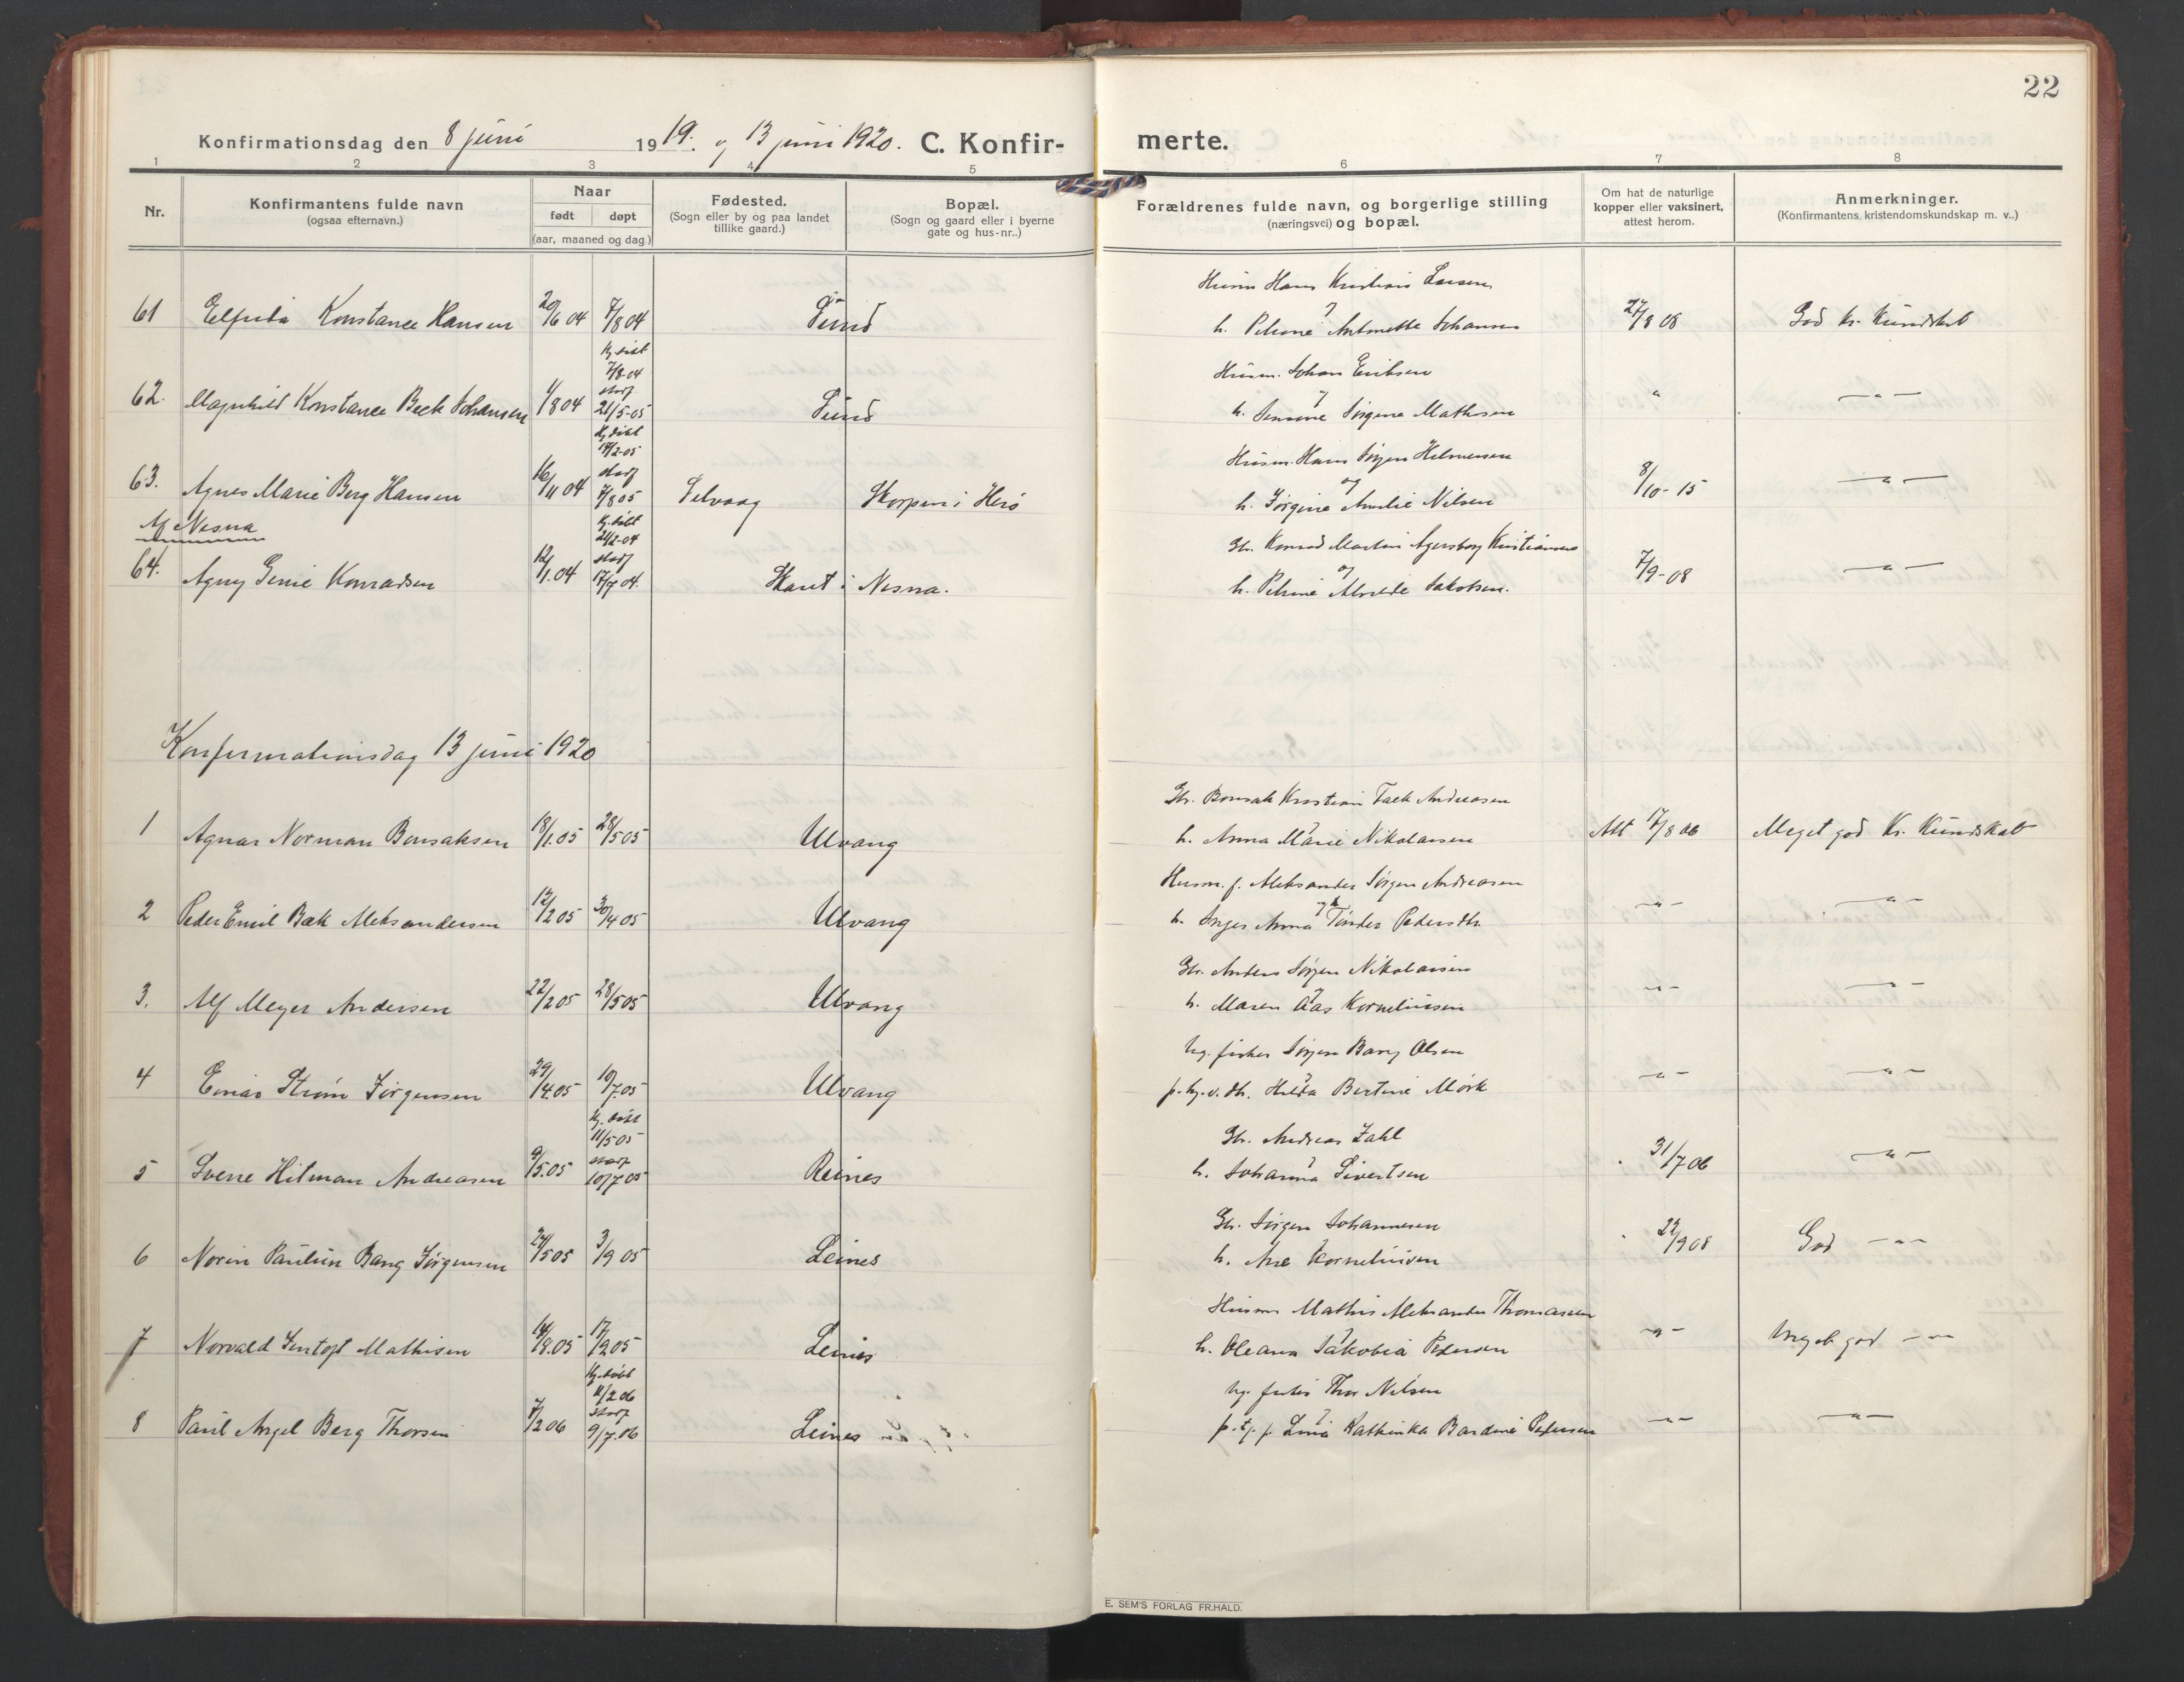 22
Konfirmationsdag den 8 juni 1919. og 13 juni 1920. C. Konfir-
merte.
1 2 3 4 5 6 7 8
Nr.
Konfirmantens fulde navn
(ogsaa efternavn.)
Naar
født døpt
(aar, maaned og dag.)
Fødested.
(Sogn eller by og paa landet
tillike gaard.)
Bopæl.
(Sogn og gaard eller i byerne
gate og hus-nr..)
Forældrenes fulde navn, og borgerlige stilling
(næringsvei) og bopæl.
Om hat de naturlige
kopper eller vaksinert,
attest herom.
Anmerkninger.
(Konfirmantens kristendomskundskap m. v..)
Husm Hans Kristian Larsen
og
61 Elfrida Konstance Hansen 20/6 04 7/8 04 Sund h. Petrine Antonette Johansen 27/8 08 God Kr. Kundskab
Hj. døbt
7/8-04
Husm. Johan Eriksen
og
62. Magnhild Konstance Beck Johansen 1/8 04 stadf 21/5-05 Sund h. Jensine Jørgine Mathisen " —"—
Hj. døbt
19/2-05
Husm. Hans Jørgen Helmersen
og
63. Agnes Marie Berg Hansen 16/11 04 stadf 7/8 05 Selvaag Skorpen i Herø h. Jørgine Amalie Nilsen 8/10-15 —"—
Af Nesna
Hj. døbt
24/2-04
Gbr. Konrad Martin Agersborg Kristiansen
og
64. Agny Genie Konradsen 12/1.04 stadf 17/7 04. Skaret i Nesna. h. Petrine Alvilde Jakobsen. 7/9-08 —"—
Konfirmationsdag 13 juni 1920
Gbr. Bonsak Kristian Falch Andreasen
og
1 Agnar Norman Bonsaksen 18/1.05 28/5 05 Ulvang h. Anna Marie Nikolaisen Att 17/8 06 Meget god Kr. Kundskab
Husm. f. Aleksander Jørgen Andreasen
og
2 Peder Emil Bæk Aleksandersen 12/2 05 30/4 05 Ulvang h. Inger Anna Tønder Pedersdtr. —"— —"—
Gbr. Anders Jørgen Nikolaisen
og
3. Alf Meyer Andersen 22/2 05 28/5 05 Ulvang h. Maren Aas Korneliussen —"— —"—
Ug. fisker Jørgen Bang Olsen
og
4 Einar Strøm Jørgensen 29/4.05 10/7.05 Ulvang p. Hilda Bertine Mørk —"— —"—
Hj. døbt
11/5 05
Gbr. Andreas Zahl
og
5 Sverre Hilman Andreasen 9/5.05 stadf 10/7 05 Reines h. Johanna Sivertsen " 31/7 06 —"—
Gbr. Jørgen Johannesen
og
6 Norin Paulin Bang Jørgensen 24/5 05 3/9 05 Leines h. Ane Korneliussen " 22/9 08 God —"—
Husm Mathis Aleksander Thomassen
og
7 Norvald Jentoft Mathisen 14/8.05 17/9 05 Leines h. Oleana Jakobia Pedersen —"— Meget god —"—
Hj. døbt
11/2 06
Ug. fisker Thor Nilsen
og
8 Paul Angel Berg Thorsen 7/2 06 stadf 9/7.06 Leines p. Lina Kathinka Bardine Pedersen —"— —"—
E. SEM'S FORLAG FR.HALD.